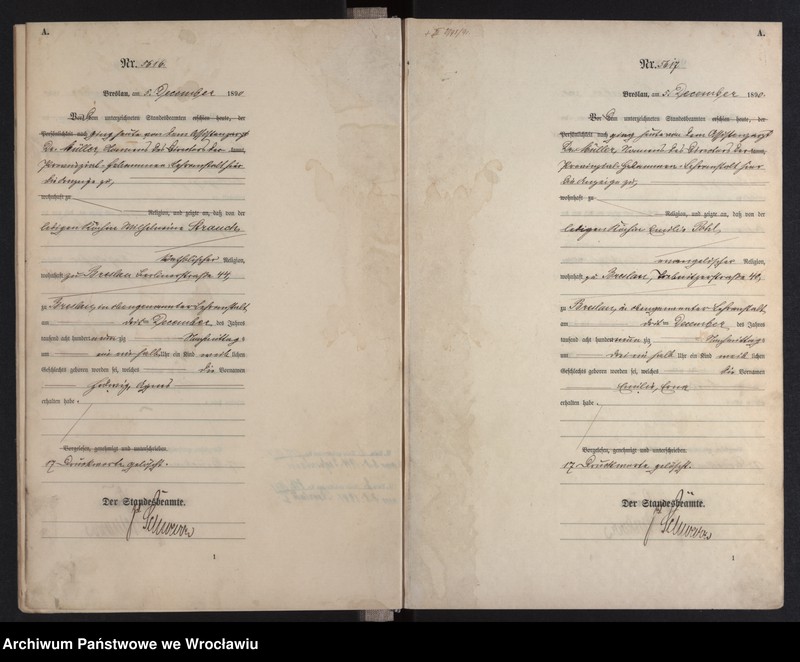 A.
Nr. 5616.
Breslau, am 5. December 1890
Vor dem unterzeichneten Standesbeamten erschien heute, der
Persönlichkeit nach ging heute von dem Assistenzarzt
Dr. Müller, Namens des Directors der kannt,
Provinzial-Hebammen-Lehranstalt hier
die Anzeige zu,
wohnhaft zu
Religion, und zeigte an, daß von der
ledigen Köchin Wilhelmine Strauch,
katholischer Religion,
wohnhaft zu Breslau Berlinerstraße 44,
zu Breslau, in obengenannter Lehranstalt,
am dritten December des Jahres
tausend acht hundert neunzig Nachmittags
um ein ein halb Uhr ein Kind weiblichen
Geschlechts geboren worden sei, welches die Vornamen
Hedwig, Agnes
erhalten habe.
Vorgelesen, genehmigt und unterschrieben
17 Druckworte gelöscht.
Der Standesbeamte.
1
+ II
A.
Nr. 5617.
Breslau, am 5. December 1890.
Vor dem unterzeichneten Standesbeamten erschien heute, der
Persönlichkeit nach ging heute von dem Assistenzarzt
Dr. Müller, Namens des Directors der kannt,
Provinzial-Hebammen-Lehranstalt hier
die Anzeige zu,
wohnhaft zu
Religion, und zeigte an, daß von der
ledigen Köchin Emilie Pohl,
evangelischer Religion,
wohnhaft zu Breslau, Trebnitzerstraße 40,
zu Breslau, in obengenannter Lehranstalt,
am dritten December des Jahres
tausend acht hundert neunzig Nachmittags
um drei ein halb Uhr ein Kind weiblichen
Geschlechts geboren worden sei, welches die Vornamen
Emilie, Erna
erhalten habe.
Vorgelesen, genehmigt und unterschrieben
17 Druckworte gelöscht.
Der Standesbeamte.
1
Archiwum Państwowe we Wrocławiu